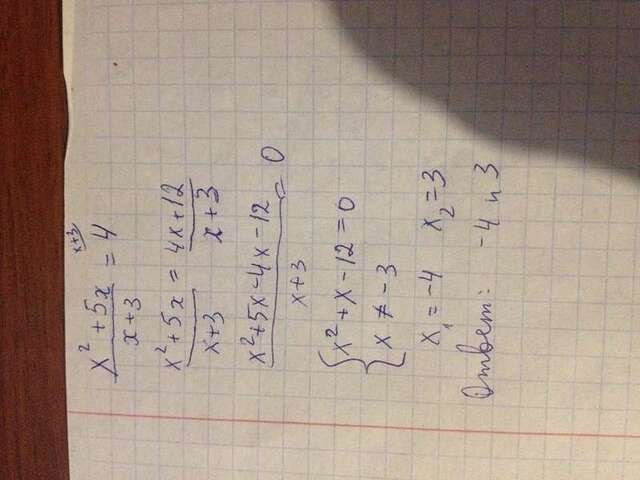 x² + 5x / x+3 = 4 x+3
x² + 5x / x+3 = 4x + 12 / x + 3
x² + 5x - 4x - 12 / x + 3 = 0
{ x² + x - 12 = 0
x ≠ -3
x₁ = -4 x₂ = 3
Ответ: -4 и 3